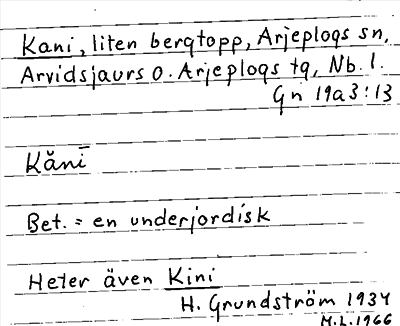 Kani, liten bergtopp, Arjeplogs sn,
Arvidsjaurs o. Arjeplogs tg, Nb. l.
Gn 19a3:13
Kǎnī
Bet. = en underjordisk
Heter även Kini
H. Grundström 1934
M.L. 1966